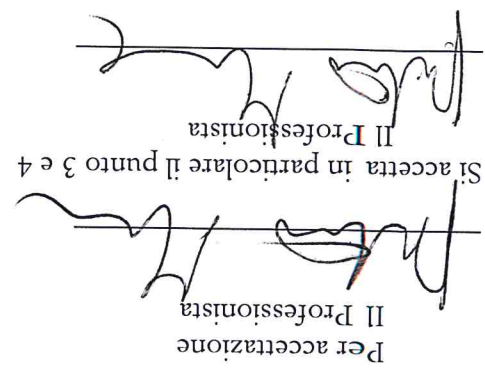 Per accettazione
Il Professionista
Si accetta in particolare il punto 3 e 4
Il Professionista